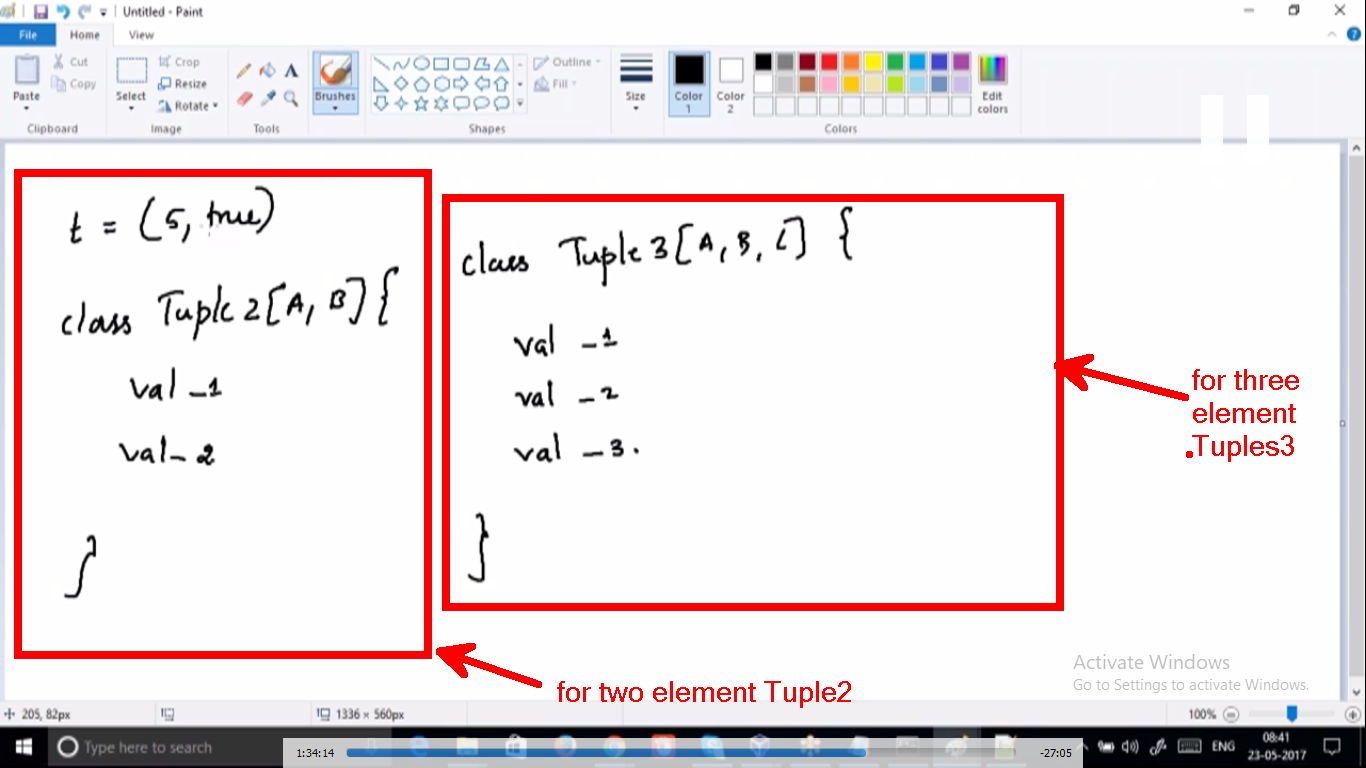 Untitled - Paint
File Home View
Paste
Cut
Copy
Clipboard
Select
Crop
Resize
Rotate
Image
Tools
Brushes
Outline
Fill
Shapes
Size
Color 1
Color 2
Edit colors
Colors
t = (5, true)
class Tuple 2 [A, B] {
val _1
val _ 2
}
class Tuple 3 [A, B, C] {
val _1
val _2
val _3.
}
for three
element
.Tuples3
for two element Tuple2
Activate Windows
Go to Settings to activate Windows.
205, 82px
1336 × 560px
100%
Type here to search
1:34:14
-27:05
ENG
08:41
23-05-2017